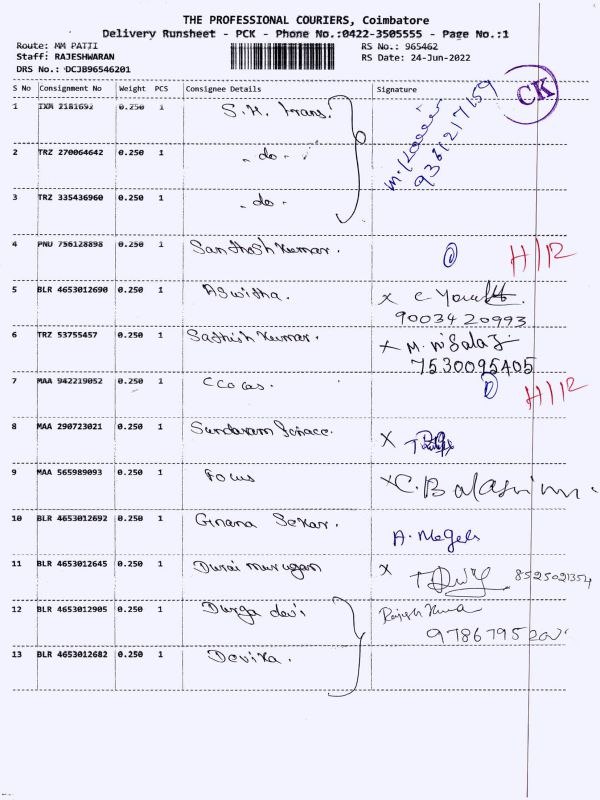 THE PROFESSIONAL COURIERS, Coimbatore
Delivery Runsheet - PCK - Phone No.:0422-3505555 - Page No.:1
Route: MM PATTI
RS No.: 965462
Staff: RAJESHWARAN
RS Date: 24-Jun-2022
DRS No.: DCJB96546201
S No Consignment No Weight PCS Consignee Details Signature
CK
1 IXM 2181692 0.250 1 S.H. trans.
9361217159
2 TRZ 270064642 0.250 1 - do -
3 TRZ 335436960 0.250 1 - do -
4 PNU 756128898 0.250 1 Santhosh Kumar. D H/12
5 BLR 4653012690 0.250 1 Aswitha. x C
9003420993
6 TRZ 53755457 0.250 1 Sathish Kumar. x M.
7530095405
7 MAA 942219052 0.250 1 D H/12
8 MAA 290723021 0.250 1 Sundaram x
9 MAA 565989093 0.250 1 Focus x C.
10 BLR 4653012692 0.250 1 Gnana Sekar. A.
11 BLR 4653012645 0.250 1 Durai murugan x 8525021354
12 BLR 4653012905 0.250 1 Durga devi Rajesh Kumar
13 BLR 4653012682 0.250 1 Devika.